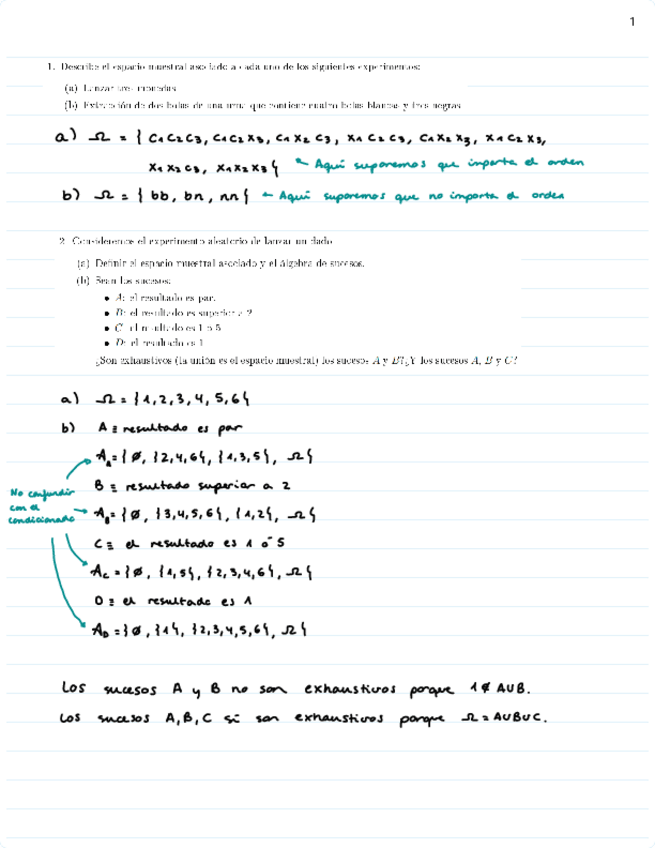 1
1. Describe el espacio muestral asociado a cada uno de los siguientes experimentos:
(a) Lanzar tres monedas
(b) Extracción de dos bolas de una urna que contiene cuatro bolas blancas y tres negras
a) Ω = { C₁C₂C₃, C₁C₂X₃, C₁X₂C₃, X₁C₂C₃, C₁X₂X₃, X₁C₂X₃,
X₁X₂C₃, X₁X₂X₃ } ← Aquí suponemos que importa el orden
b) Ω = { bb, bn, nn } ← Aquí suponemos que no importa el orden
2. Consideremos el experimento aleatorio de lanzar un dado
(a) Definir el espacio muestral asociado y el álgebra de sucesos.
(b) Sean los sucesos:
• A: el resultado es par.
• B: el resultado es superior a 2
• C: el resultado es 1 o 5
• D: el resultado es 1
¿Son exhaustivos (la unión es el espacio muestral) los sucesos A y B? ¿Y los sucesos A, B y C?
a) Ω = {1, 2, 3, 4, 5, 6}
b) A ≡ resultado es par
A_A = {∅, {2,4,6}, {1,3,5}, Ω}
B ≡ resultado superior a 2
No confundir
con el
condicionado
A_B = {∅, {3,4,5,6}, {1,2}, Ω}
C ≡ el resultado es 1 ó 5
A_C = {∅, {1,5}, {2,3,4,6}, Ω}
D ≡ el resultado es 1
A_D = {∅, {1}, {2,3,4,5,6}, Ω}
Los sucesos A y B no son exhaustivos porque 1 ∉ A∪B.
Los sucesos A, B, C sí son exhaustivos porque Ω = A∪B∪C.